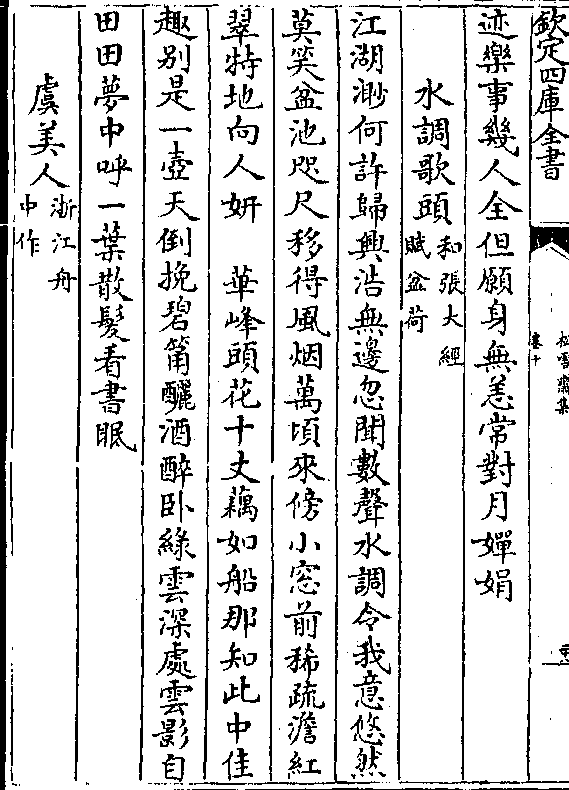 欽定四庫全書
松雪齋集
卷十
迹樂事幾人全但願身無恙常對月嬋娟
水調歌頭和張大經賦盆荷
江湖渺何許歸興浩無邊忽聞數聲水調令我意悠然
莫笑盆池咫尺移得風烟萬頃來傍小窓前稀疏澹紅
翠特地向人妍　華峰頭花十丈藕如船那知此中佳
趣别是一壺天倒挽碧筩釃酒醉卧綠雲深處雲影自
田田夢中呼一葉散髮看書眠
虞美人浙江舟中作